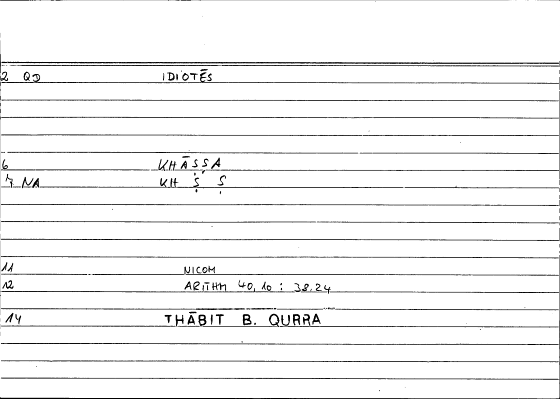 2 QD IDIOTĒS
6 KHĀṢṢA
7 NA KH Ṣ Ṣ
11 NICOM
12 ARITHM 40,10 : 38.24
14 THĀBIT B. QURRA